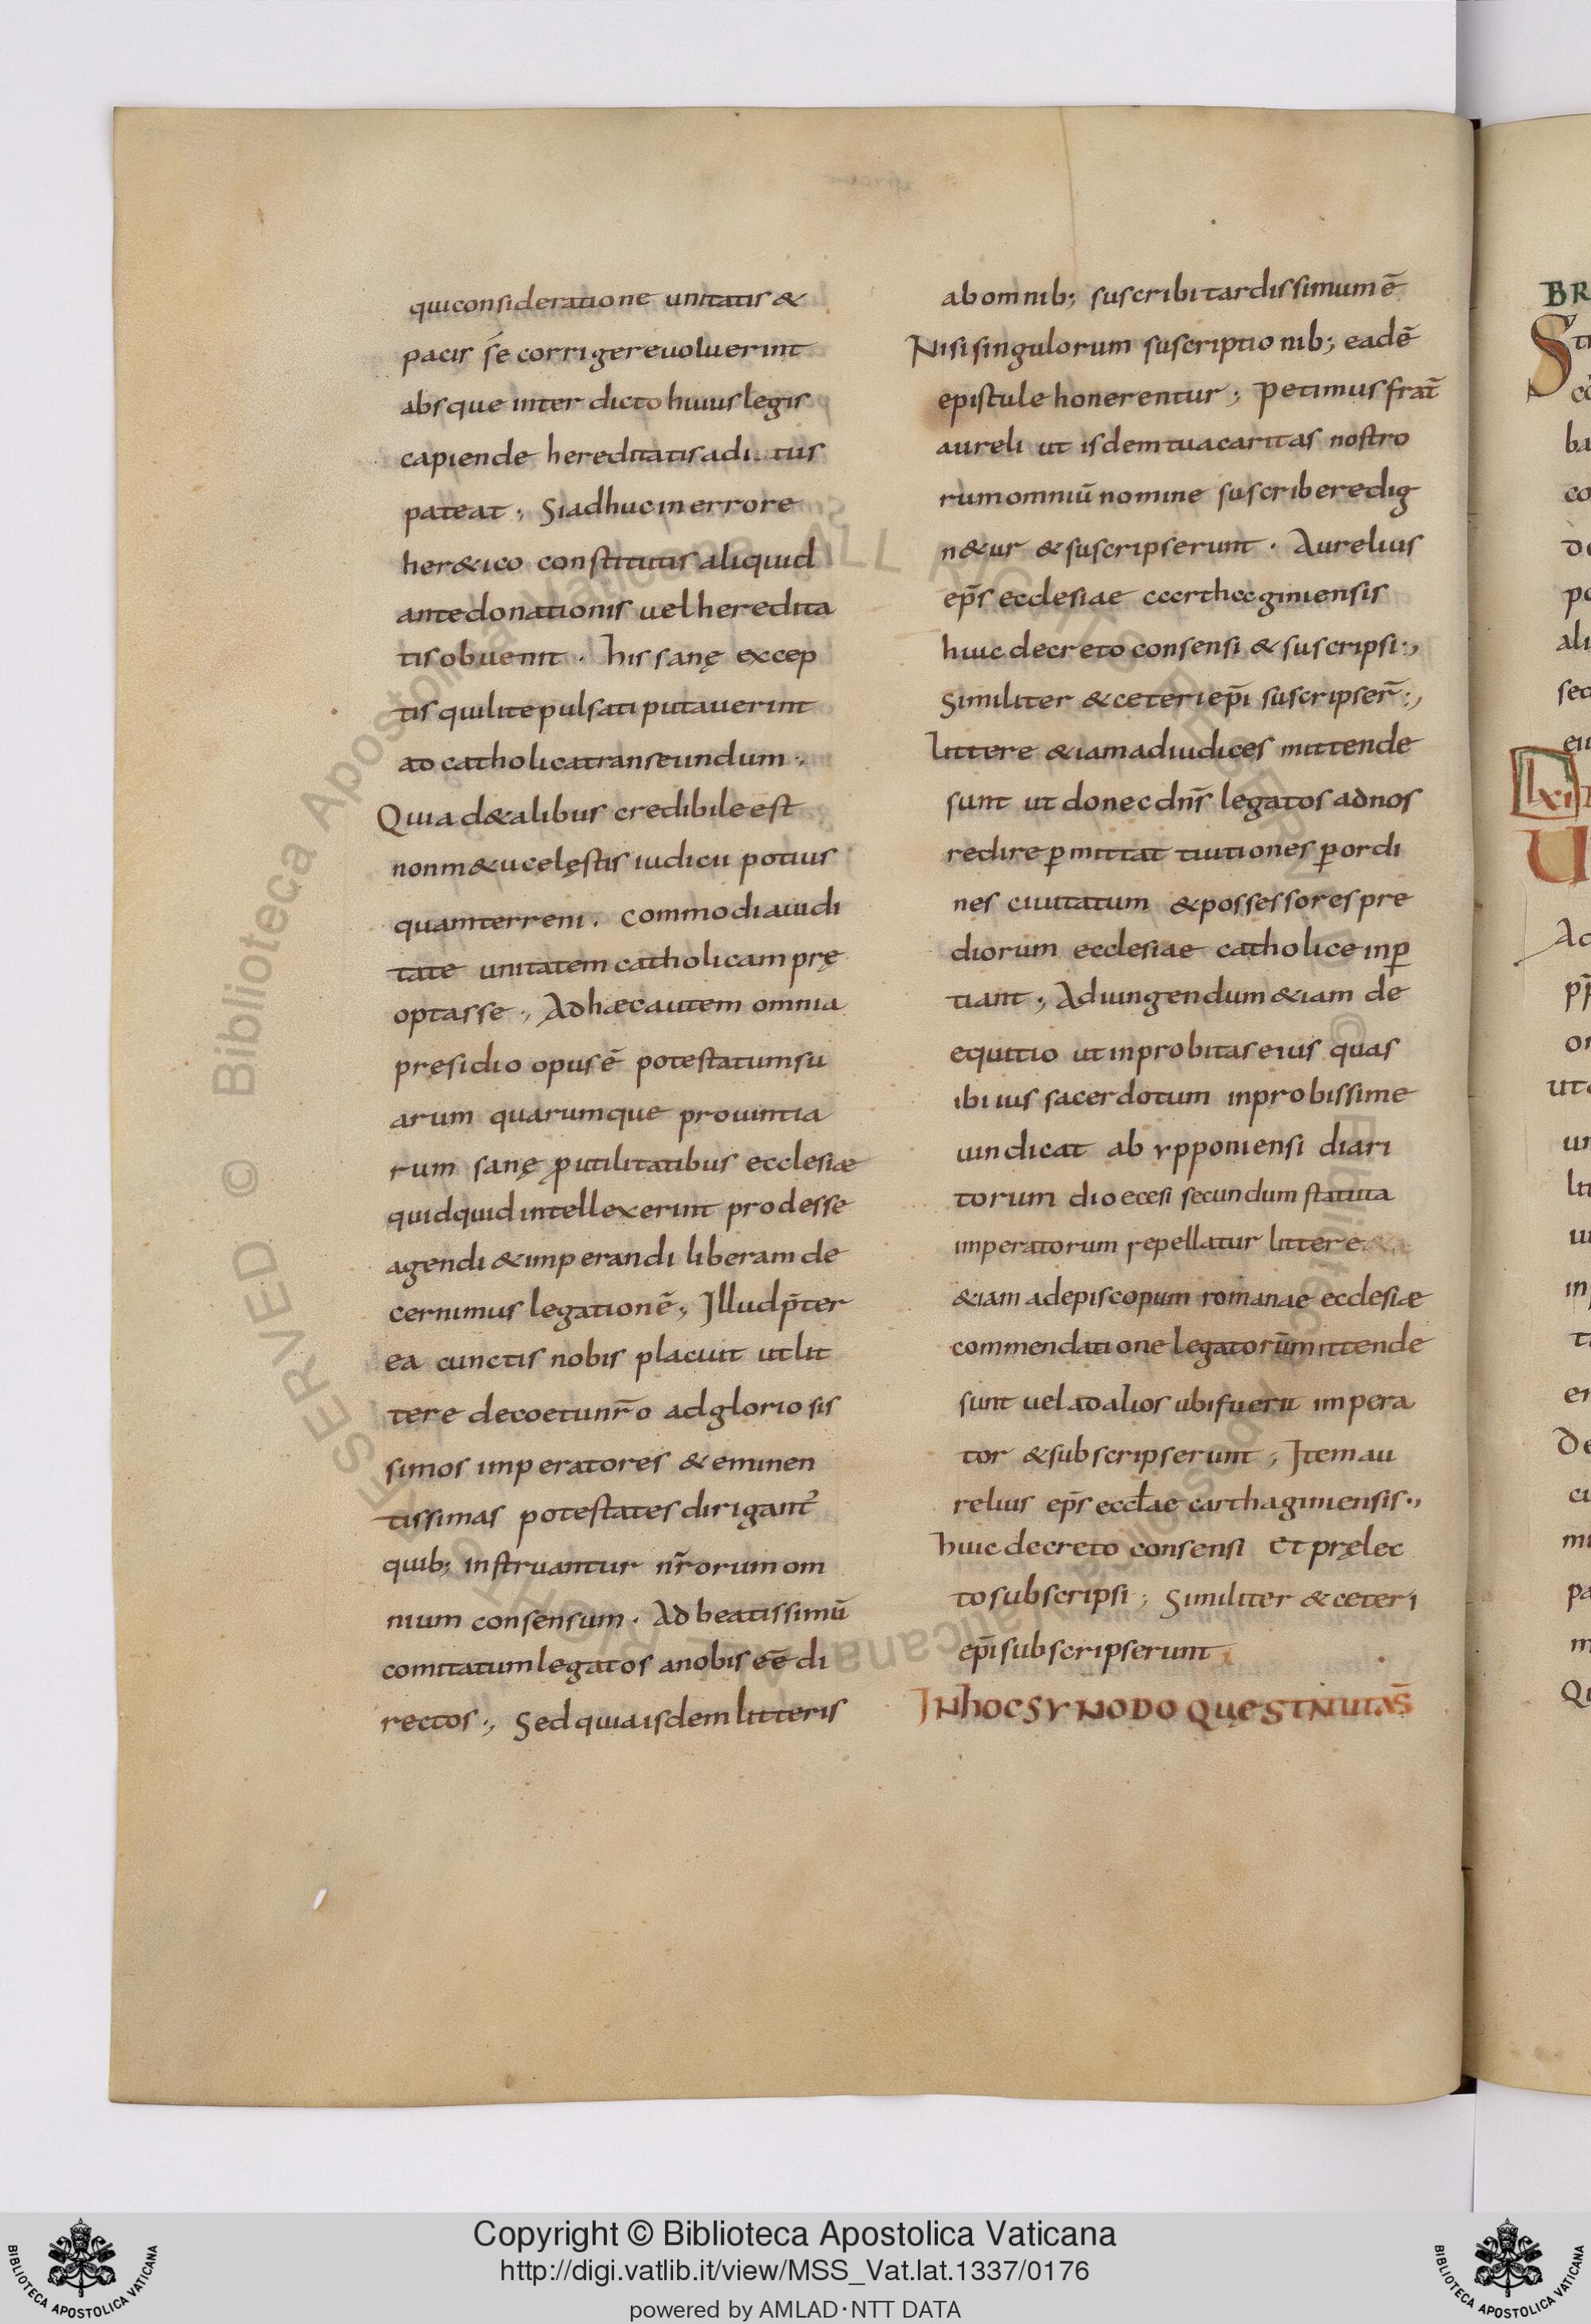 qui consideratione unitatis &
pacis se corrigere uoluerint
absque inter dicto huius legis
capiende hereditatis adi tus
pateat ; Si adhuc in errore
her&ico constitutis aliquid
ante donationis uel heredita
tis obuenit . his sanę excep
tis qui lite pulsati putauerint
ad catholica transeundum ;
Quia d& alibus credibile est
non m&u celęstis iudicii potius
quam terreni . commodi auidi
tate unitatem catholicam prę
optasse ; Ad hæc autem omnia
presidio opus ē potestatum su
arum quarumque prouintia
rum sanę ꝓ utilitatibus ecclesiæ
quidquid intellexerint prodesse
agendi & imperandi liberam de
cernimus legationē ; Illud p̄ter
ea cunctis nobis placuit ut lit
tere de coetu nr̄o ad glorio sis
simos imperatores & eminen
tissimas potestates dirigant᷑
quib; instruantur nr̄orum om
nium consensum . Ad beatissimū
comitatum legatos a nobis eē di
rectos ; Sed quia isdem litteris
ab omnib; suscribi tardissimum ē
Nisi singulorum suscriptionib; eadē
epistule honerentur ; Petimus frat̄
aureli ut isdem tua caritas nostro
rum omniū nomine suscribere dig
n&ur & suscripserunt . Aurelius
ep̄s ecclesiae carthaginiensis
huic decreto consensi & suscripsi ;
Similiter & ceteri ep̄i suscripser̄ ;
Littere &iam ad iudices mittende
sunt ut donec dn̄s legatos ad nos
redire ꝑmittat tuitiones ꝑ ordi
nes ciuitatum & possessores pre
diorum ecclesiae catholice inꝑ
tiant ; Adiungendum &iam de
equitio ut inprobitas eius quas
ibi ius sacerdotum inprobissime
uindicat ab ypponiensi diari
torum dioecesi secundum statuta
imperatorum repellatur littere
&iam ad episcopum romanae ecclesiæ
commendatione legatorū mittende
sunt uel ad alios ubi fuerit impera
tor & subscripserunt ; Item au
relius ep̄s eccl̄ae carthaginiensis ;
huic decreto consensi Et pręlec
to subscripsi ; Similiter & ceteri
ep̄i subscripserunt
IN hOC SYNODO
BR
lxi
Copyright © Biblioteca Apostolica Vaticana
http://digi.vatlib.it/view/MSS_Vat.lat.1337/0176
powered by AMLAD·NTT DATA
BIBLIOTECA APOSTOLICA VATICANA
BIBLIOTECA APOSTOLICA VATICANA